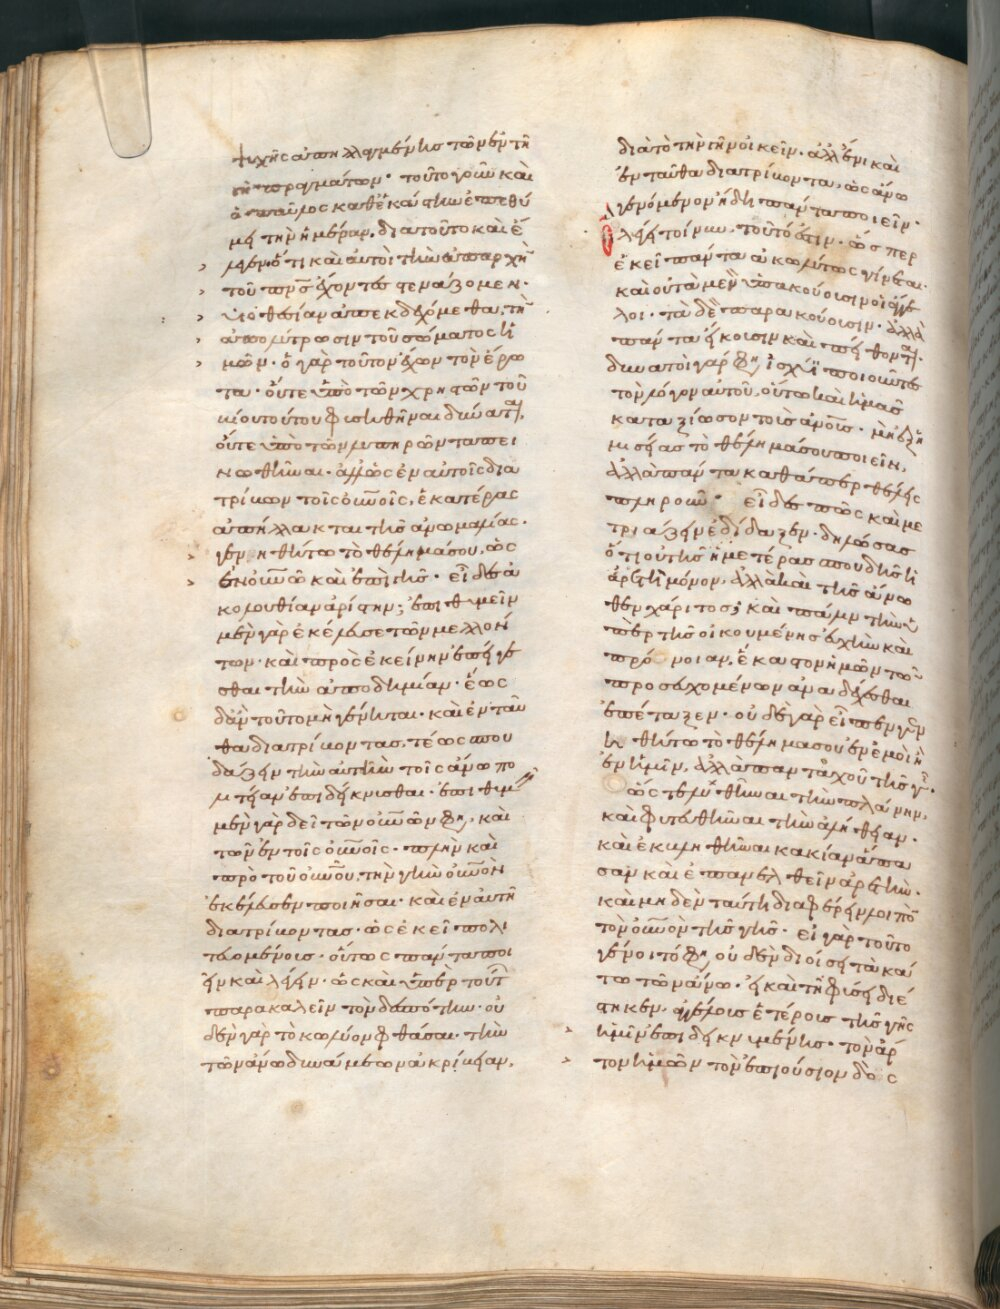 ψυχῆς ἀπηλλαγμένης τῶν ἐν τῆ
γῆ πραγμάτων· τοῦτο γοῦν καὶ
ὁ παῦλος καθ' ἑκάστην ἐπεθύ
μει τὴν ἡμέραν. διὰ τοῦτο καὶ ἔ
λεγεν· ὅτι καὶ αὐτοὶ τὴν ἀπαρχὴν
τοῦ πνς ἔχοντες στενάζομεν·
υἱοθεσίαν ἀπεκδεχόμεθα, τὴν
ἀπολύτρωσιν τοῦ σώματος ἡ
μῶν· ὁ γὰρ τοῦτον ἔχων τὸν ἔρω
τα· οὔτε ὑπὸ τῶν χρηστῶν τοῦ
βίου τούτου φυσηθῆναι δύναται,
οὔτε ὑπὸ τῶν λυπηρῶν ταπει
νωθῆναι· ἀλλ' ὡς ἐν αὐτοῖς δια
τρίβων τοῖς οὐνοῖς, ἑκατέρας
ἀπήλλακται τῆς ἀνωμαλίας·
γενηθήτω τὸ θέλημά σου, ὡς
ἐν οὐνῶ καὶ ἐπὶ τῆς· εἶδες ἀ
κολουθίαν ἀρίστην; ἐπιθυμεῖν
μὲν γὰρ ἐκέλευσε τῶν μελλόν
των· καὶ πρὸς ἐκείνην ἐπείγε
σθαι τὴν ἀποδημίαν· ἕως
δ' ἂν τοῦτο μὴ γένηται· καὶ ἐνταῦ
θα διατρίβοντας, τέως σπου
δάζειν τὴν αὐτὴν τοῖς ἄνω πο
λιτείαν ἐπιδείκνυσθαι· ἐπιθυμεῖν
μὲν γὰρ δεῖ τῶν οὐνῶν φη, καὶ
τῶν ἐν τοῖς οὐνοῖς· πλὴν καὶ
πρὸ τοῦ οὐνοῦ, τὴν γῆν οὐνὸν
ἐκέλευσεν ποιῆσαι· καὶ ἐν αὐτῆ
διατρίβοντας· ὡς ἐκεῖ πολι
τευομένοις· οὕτως πάντα ποι
εῖν καὶ λέγειν· ὡς καὶ ὑπὲρ τούτων
παρακαλεῖν τὸν δεσπότην· οὐ
δὲν γὰρ τὸ κωλύον φθάσαι τὴν
τῶν ἄνω δυνάμεων ἀκρίβειαν,
διὰ τὸ τὴν γῆν οἰκεῖν· ἀλλ' ἔνι καὶ
ἐνταῦθα διατρίβοντα, ὡς ἄνω
γενόμενον ἤδη πάντα ποιεῖν·
λέγει τοίνυν, τοῦτό ἐστιν· ὥσπερ
ἐκεῖ πάντα ἀκωλύτως γίνεται·
καὶ οὐ τὰ μὲν ὑπακούουσιν οἱ ἄγγε
λοι· τὰ δὲ παρακούουσιν· ἀλλὰ
πάντα εἴκουσιν καὶ πείθονται.
δυνατοὶ γὰρ φη, ἰσχύϊ ποιοῦντες
τὸν λόγον αὐτοῦ, οὕτω καὶ ἡμᾶς
καταξίωσον τοὺς ἀνους· μὴ ἐξ ἡ
μισείας τὸ θέλημά σου ποιεῖν,
ἀλλὰ πάντα καθάπερ θέλεις
πληροῦν· εἶδες πῶς καὶ με
τριάζειν ἐδίδαξεν· δηλώσας
ὅτι οὐ τῆς ἡμετέρας σπουδῆς ἡ
ἀρετὴ μόνον, ἀλλὰ καὶ τῆς ἄνω
θεν χάριτος; καὶ πάλιν τὴν ὑ
πὲρ τῆς οἰκουμένης εὐχὴν καὶ
πρόνοιαν, ἕκαστον ἡμῶν τῶν
προσευχομένων ἀναδέχεσθαι
ἐπέταξεν· οὐδὲ γὰρ εἶπεν γεν
ηθήτω τὸ θέλημα σου ἐν ἐμοὶ ἢ
ἐν ἡμῖν, ἀλλὰ πανταχοῦ τῆς γῆς.
ὡς τε λυθῆναι τὴν πλάνην,
καὶ φυτευθῆναι τὴν ἀλήθειαν·
καὶ ἐκβληθῆναι κακίαν ἅπα
σαν καὶ ἐπανελθεῖν ἀρετήν·
καὶ μηδὲν ταύτη διαφέρειν λοιπὸν
τὸν οὐνὸν τῆς γῆς· εἰ γὰρ τοῦτο
γένοιτό φη, οὐδὲν διοίσει τὰ κά
τω τῶν ἄνω· εἰ καὶ τῆ φύσει διέ
στηκεν· ἀγγέλοις ἑτέροις τῆς γῆς
ἡμῖν ἐπιδεικνυμένης· τὸν ἄρ
τον ἡμῶν τὸν ἐπιούσιον δὸς